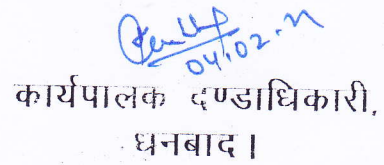 04.02.21
कार्यपालक दण्डाधिकारी,
धनबाद।